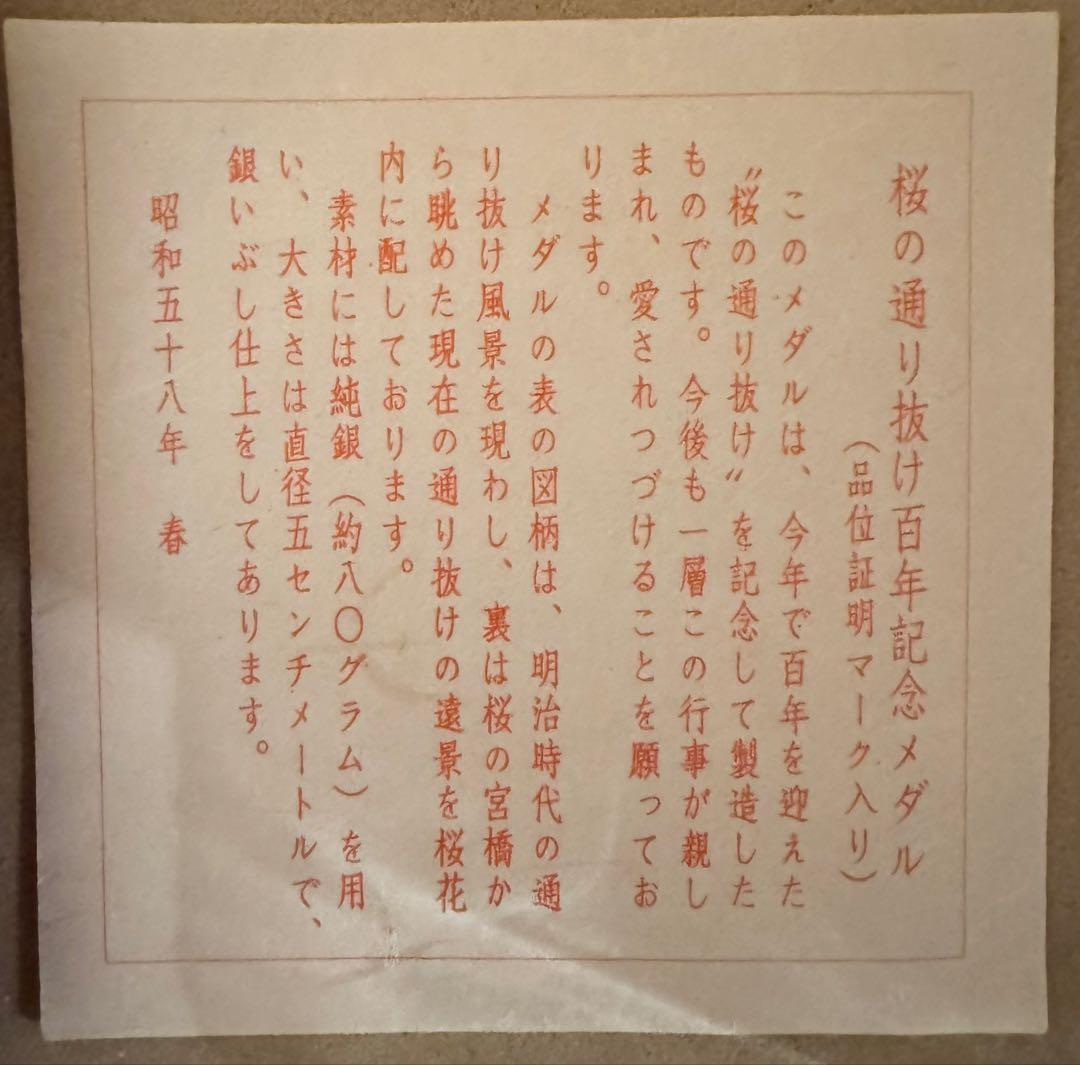 桜の通り抜け百年記念メダル
（品位証明マーク入り）
このメダルは、今年で百年を迎えた
〝桜の通り抜け〟を記念して製造した
ものです。今後も一層この行事が親し
まれ、愛されつづけることを願ってお
ります。
メダルの表の図柄は、明治時代の通
り抜け風景を現わし、裏は桜の宮橋か
ら眺めた現在の通り抜けの遠景を桜花
内に配しております。
素材には純銀（約八〇グラム）を用
い、大きさは直径五センチメートルで、
銀いぶし仕上をしてあります。
昭和五十八年　春